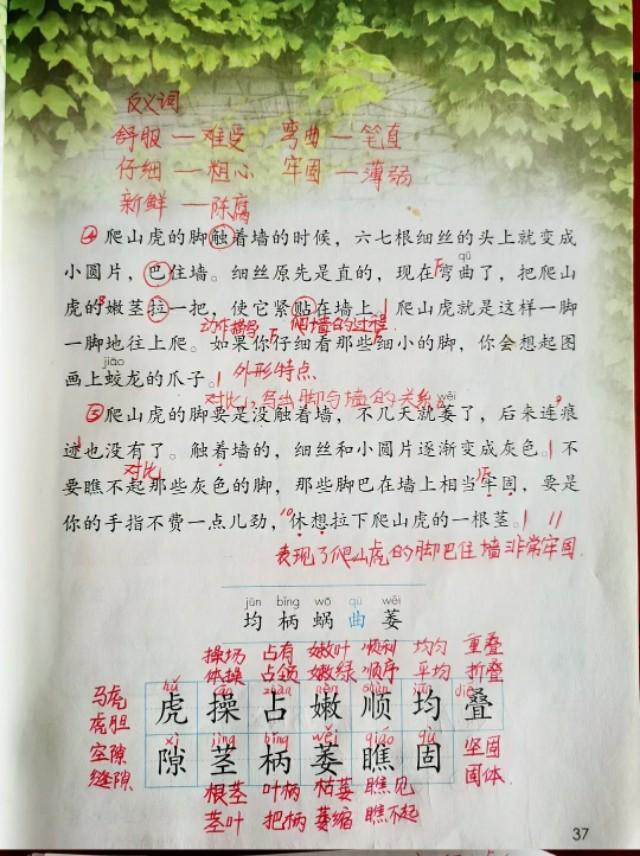 反义词
舒服—难受 弯曲—笔直
仔细—粗心 牢固—薄弱
新鲜—陈腐
④爬山虎的脚触着墙的时候，六七根细丝的头上就变成
qū
小圆片，巴住墙。细丝原先是直的，现在弯曲了，把爬山
虎的嫩茎拉一把，使它紧贴在墙上。爬山虎就是这样一脚
动作描写 爬墙的过程
一脚地往上爬。如果你仔细看那些细小的脚，你会想起图
jiāo
画上蛟龙的爪子。 外形特点
对比，写出脚与墙的关系。
wěi
⑤爬山虎的脚要是没触着墙，不几天就萎了，后来连痕
迹也没有了。触着墙的，细丝和小圆片逐渐变成灰色。不
对比
要瞧不起那些灰色的脚，那些脚巴在墙上相当牢固，要是
你的手指不费一点儿劲，休想拉下爬山虎的一根茎。
表现了爬山虎的脚巴住墙非常牢固.
jūn bǐng wō qū wěi
均 柄 蜗 曲 萎
操场 占有 嫩叶 顺利 均匀 重叠
体操 占领 嫩绿 顺序 平均 折叠
马虎
虎胆
hǔ cāo zhàn nèn shùn jūn dié
虎 操 占 嫩 顺 均 叠
空隙
缝隙
xì jīng bǐng wěi qiáo gù
隙 茎 柄 萎 瞧 固
坚固
固体
根茎 叶柄 枯萎 瞧见
茎叶 把柄 萎缩 瞧不起
37